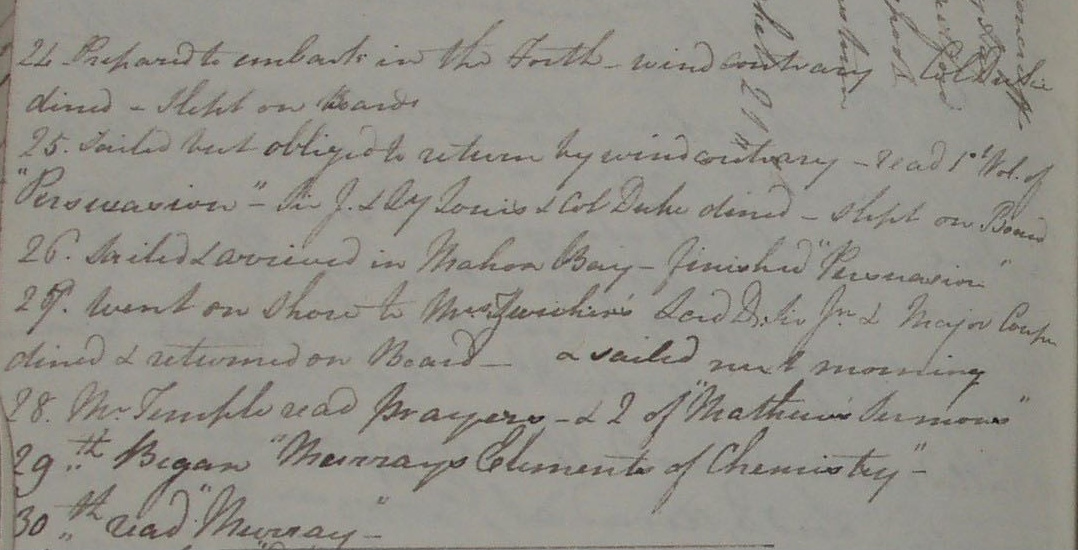 24 Prepared to embark in the Forth – wind contrary Col Duke
dined – slept on Board
25. Sailed but obliged to return by wind contrary – read 1st Vol. of
"Persuasion" – Sir J. & Ly Louis & Col Duke dined – slept on Board
26. Sailed & arrived in Mahon Bay – finished "Persuasion"
27. Went on shore to Mrs Lord D. Sir Jn. & Major
dined & returned on Board – & sailed next morning
28. Mr Temple read prayers – & 2 of "Mathew's Sermons"
29th Began "Murrays Elements of Chemistry" –
30th read "Murray" –